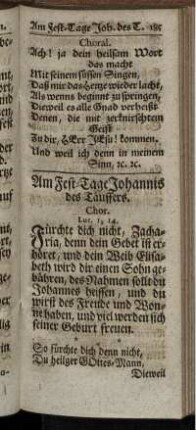 Am Fest-Tage Joh. des T. 185
Choral.
Ach! ja dein heilsam Wort
das macht
Mit seinem süssen Singen,
Daß mir das Hertze wieder lacht,
Als wenns beginnt zu springen,
Dieweil es alle Gnad verheißt
Denen, die mit zerknirschtem
Geist
Zu dir, HErr JEsu! kommen.
Und weil ich denn in meinem
Sinn, ꝛc. ꝛc.
Am Fest-Tage Johannis
des Täuffers.
Chor.
Luc. 1, 14.
Fürchte dich nicht, Zacha-
ria, denn dein Gebet ist er-
höret, und dein Weib Elisa-
beth wird dir einen Sohn ge-
bähren, des Nahmen sollt du
Johannes heissen, und du
wirst des Freude und Won-
ne haben, und viel werden sich
seiner Geburt freuen.
So fürchte dich denn nicht,
Du heilger GOttes-Mann,
Dieweil